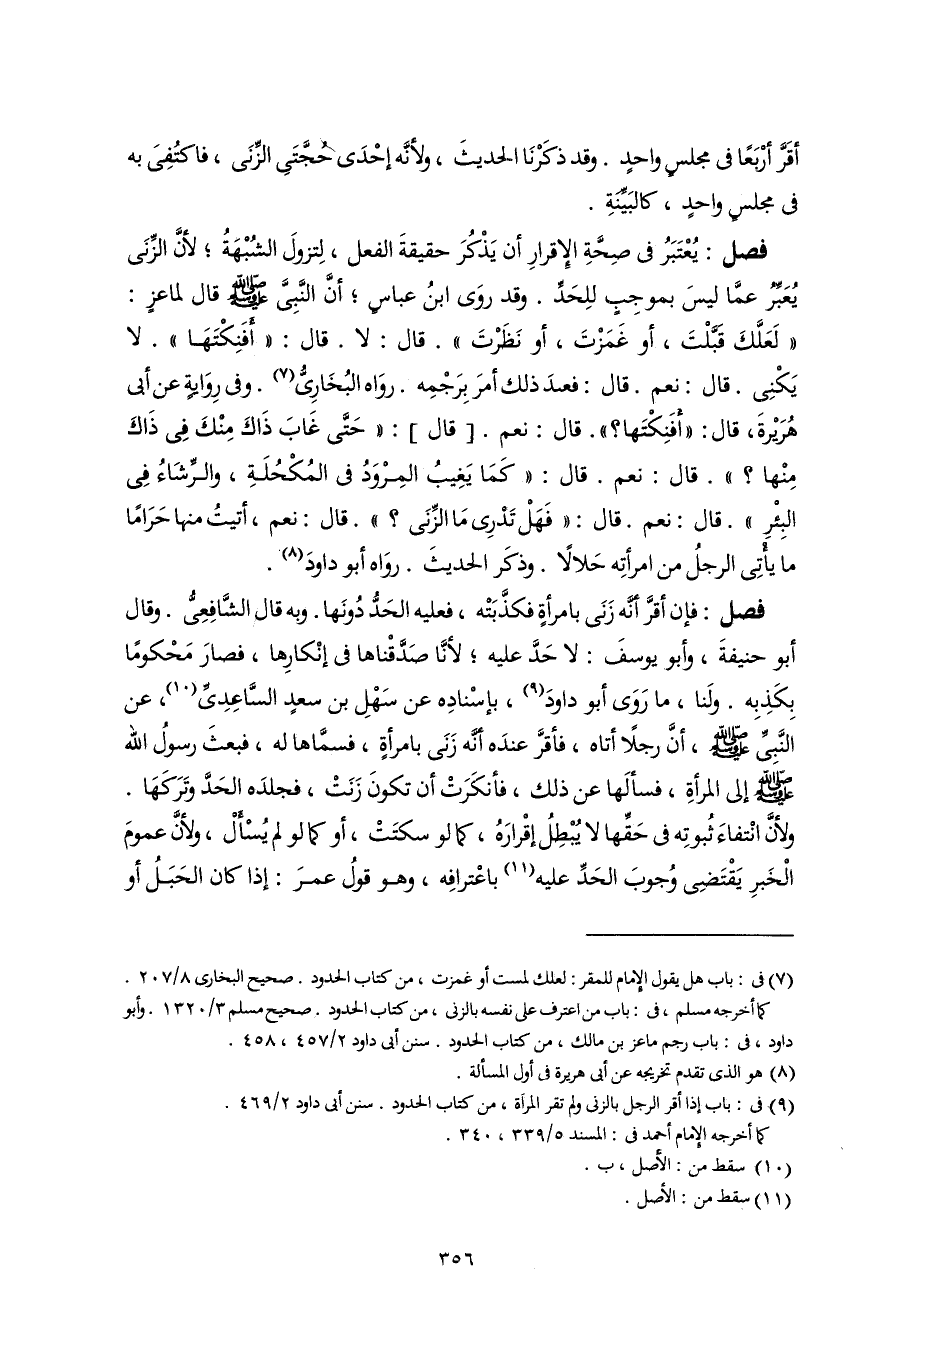 أقَرَّ أرْبَعًا فى مجلسٍ واحدٍ . وقد ذكَرْنَا الحديثَ ، ولأنَّه إحْدَى حُجَّتَىِ الزِّنَى ، فاكتُفِىَ به
فى مجلسٍ واحدٍ ، كالبَيِّنَةِ .
فصل : يُعْتَبَرُ فى صِحَّةِ الإقرارِ أن يَذْكُرَ حقيقةَ الفعلِ ، لِتزولَ الشُبْهَةُ ؛ لأنَّ الزِّنَى
يُعَبَّرُ عمَّا ليسَ بموجبٍ للِحَدِّ . وقد روَى ابنُ عباسٍ ؛ أنَّ النَّبِىَّ ﷺ قال لماعزٍ :
« لَعَلَّكَ قَبَّلْتَ ، أو غَمَزْتَ ، أو نَظَرْتَ » . قال : لا . قال : « أَفَنِكْتَهَا » . لا
يَكْنِى . قال : نعم . قال : فعند ذلك أمرَ بِرَجْمِه . رواه البُخَارِىُّ(٧) . وفى رِوَايةٍ عن أبى
هُرَيْرةَ، قال: «أَفَنِكْتَها؟». قال : نعم . [ قال ] : « حَتَّى غَابَ ذَاكَ مِنْكَ فِى ذَاكَ
مِنْها ؟ » . قال : نعم . قال : « كَمَا يَغِيبُ المِرْوَدُ فى المُكْحُلَةِ ، والرِّشَاءُ فِى
البِئْرِ » . قال : نعم . قال : « فَهَلْ تَدْرِى مَا الزِّنَى ؟ » . قال : نعم ، أتيتُ منها حَرَامًا
ما يأْتِى الرجلُ من امرأتِه حَلالًا . وذكَر الحديثَ . روَاه أبو داودَ(٨) .
فصل : فإن أقرَّ أنَّه زَنَى بامرأةٍ فكذَّبَتْه ، فعليه الحَدُّ دُونَها. وبه قال الشَّافِعِىُّ . وقال
أبو حنيفةَ ، وأبو يوسفَ : لا حَدَّ عليه ؛ لأنَّا صَدَّقْناها فى إنْكارِها ، فصارَ مَحْكومًا
بِكَذِبِه . ولَنا ، ما رَوَى أبو داودَ(٩) ، بإسْنادِه عن سَهْلِ بن سعدٍ السَّاعِدِىِّ(١٠)، عن
النَّبِىِّ ﷺ ، أنَّ رجلًا أتاه ، فأقرَّ عندَه أنَّه زَنَى بامرأةٍ ، فسمَّاها له ، فبعثَ رسولُ الله
ﷺ إلى المرأةِ ، فسألَها عن ذلك ، فأنكَرَتْ أن تكونَ زَنَتْ ، فجلدَه الحَدَّ وتَرَكَهَا .
ولأنَّ انْتفاءَ ثُبوتِه فى حَقِّها لا يُبْطِلُ إقْرارَهُ ، كما لو سكتَتْ ، أو كما لو لم يُسْأَلْ ، ولأنَّ عمومَ
الْخَبرِ يَقْتَضِى وُجوبَ الحَدِّ عليه(١١) باعْترافِه ، وهـو قولُ عمرَ : إذا كان الحَبَلُ أو
(٧) فى : باب هل يقول الإمام للمقر : لعلك لمست أو غمزت ، من كتاب الحدود . صحيح البخارى ٢٠٧/٨ .
كما أخرجه مسلم ، فى : باب من اعترف على نفسه بالزنى ، من كتاب الحدود . صحيح مسلم ١٣٢٠/٣ . وأبو
داود ، فى : باب رجم ماعز بن مالك ، من كتاب الحدود . سنن أبى داود ٤٥٧/٢ ، ٤٥٨ .
(٨) هو الذى تقدم تخريجه عن أبى هريرة فى أول المسألة .
(٩) فى : باب إذا أقر الرجل بالزنى ولم تقر المرأة ، من كتاب الحدود . سنن أبى داود ٤٦٩/٢ .
كما أخرجه الإمام أحمد فى : المسند ٣٣٩/٥ ، ٣٤٠ .
(١٠) سقط من : الأصل ، ب .
(١١) سقط من : الأصل .
٣٥٦